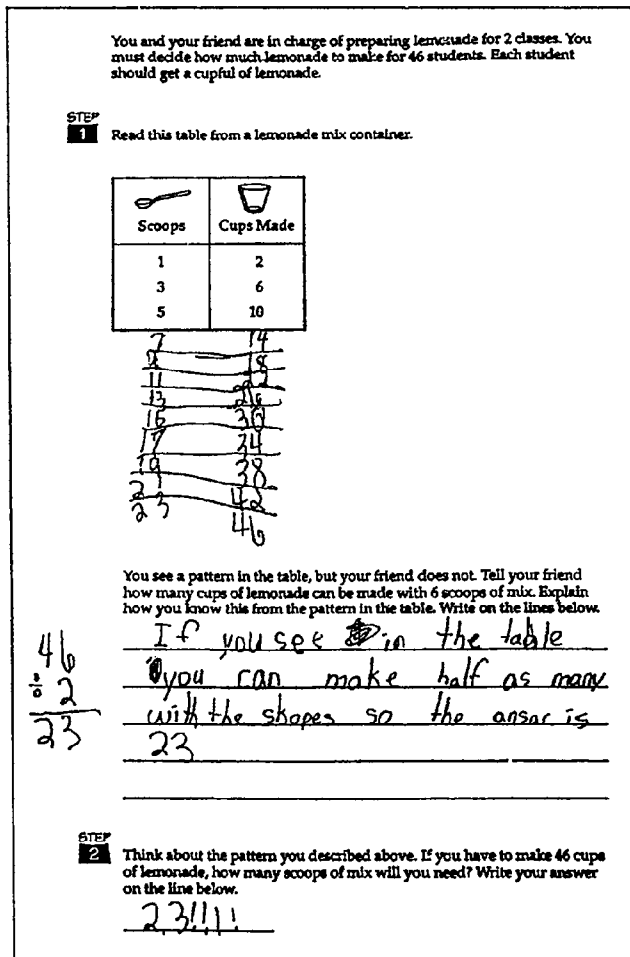 You and your friend are in charge of preparing lemonade for 2 classes. You
must decide how much lemonade to make for 46 students. Each student
should get a cupful of lemonade.
STEP
1 Read this table from a lemonade mix container.
Scoops Cups Made
1 2
3 6
5 10
7 14
18
11
13 26
30
17 34
19 38
42
23 46
You see a pattern in the table, but your friend does not. Tell your friend
how many cups of lemonade can be made with 6 scoops of mix. Explain
how you know this from the pattern in the table. Write on the lines below.
46
÷ 2
23
If you see in the table
you can make half as many
with the skopes so the ansar is
23
STEP
2 Think about the pattern you described above. If you have to make 46 cups
of lemonade, how many scoops of mix will you need? Write your answer
on the line below.
23!!!!